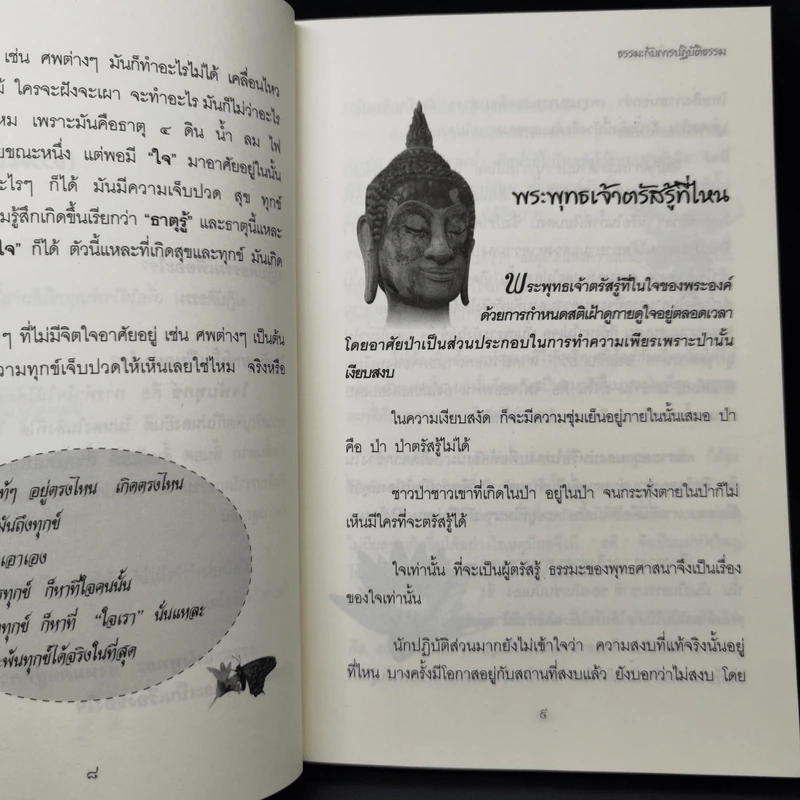 เช่น ศพต่างๆ มันก็ทำอะไรไม่ได้ เคลื่อนไหว
ใครจะฝังจะเผา จะทำอะไร มันก็ไม่ว่าอะไร
เพราะมันคือธาตุ ๔ ดิน น้ำ ลม ไฟ
ขณะหนึ่ง แต่พอมี “ใจ” มาอาศัยอยู่ในนั้น
ะไรๆ ก็ได้ มันมีความเจ็บปวด สุข ทุกข์
มรู้สึกเกิดขึ้นเรียกว่า “ธาตุรู้” และธาตุนี้แหละ
ใจ” ก็ได้ ตัวนี้แหละที่เกิดสุขและทุกข์ มันเกิด
ๆ ที่ไม่มีจิตใจอาศัยอยู่ เช่น ศพต่างๆ เป็นต้น
ความทุกข์เจ็บปวดให้เห็นเลยใช่ไหม จริงหรือ
ท้ๆ อยู่ตรงไหน เกิดตรงไหน
มันถึงทุกข์
เอาเอง
ทุกข์ ก็หาที่ใจคนนั้น
ทุกข์ ก็หาที่ “ใจเรา” นั่นแหละ
ะพ้นทุกข์ได้จริงในที่สุด
๘
ธรรมะกับการปฏิบัติธรรม
พระพุทธเจ้าตรัสรู้ที่ไหน
พระพุทธเจ้าตรัสรู้ที่ในใจของพระองค์
ด้วยการกำหนดสติเฝ้าดูกายดูใจอยู่ตลอดเวลา
โดยอาศัยป่าเป็นส่วนประกอบในการทำความเพียรเพราะป่านั้น
เงียบสงบ
ในความเงียบสงัด ก็จะมีความชุ่มเย็นอยู่ภายในนั้นเสมอ ป่า
คือ ป่า ป่าตรัสรู้ไม่ได้
ชาวป่าชาวเขาที่เกิดในป่า อยู่ในป่า จนกระทั่งตายในป่าก็ไม่
เห็นมีใครที่จะตรัสรู้ได้
ใจเท่านั้น ที่จะเป็นผู้ตรัสรู้ ธรรมะของพุทธศาสนาจึงเป็นเรื่อง
ของใจเท่านั้น
นักปฏิบัติส่วนมากยังไม่เข้าใจว่า ความสงบที่แท้จริงนั้นอยู่
ที่ไหน บางครั้งมีโอกาสอยู่กับสถานที่สงบแล้ว ยังบอกว่าไม่สงบ โดย
๙